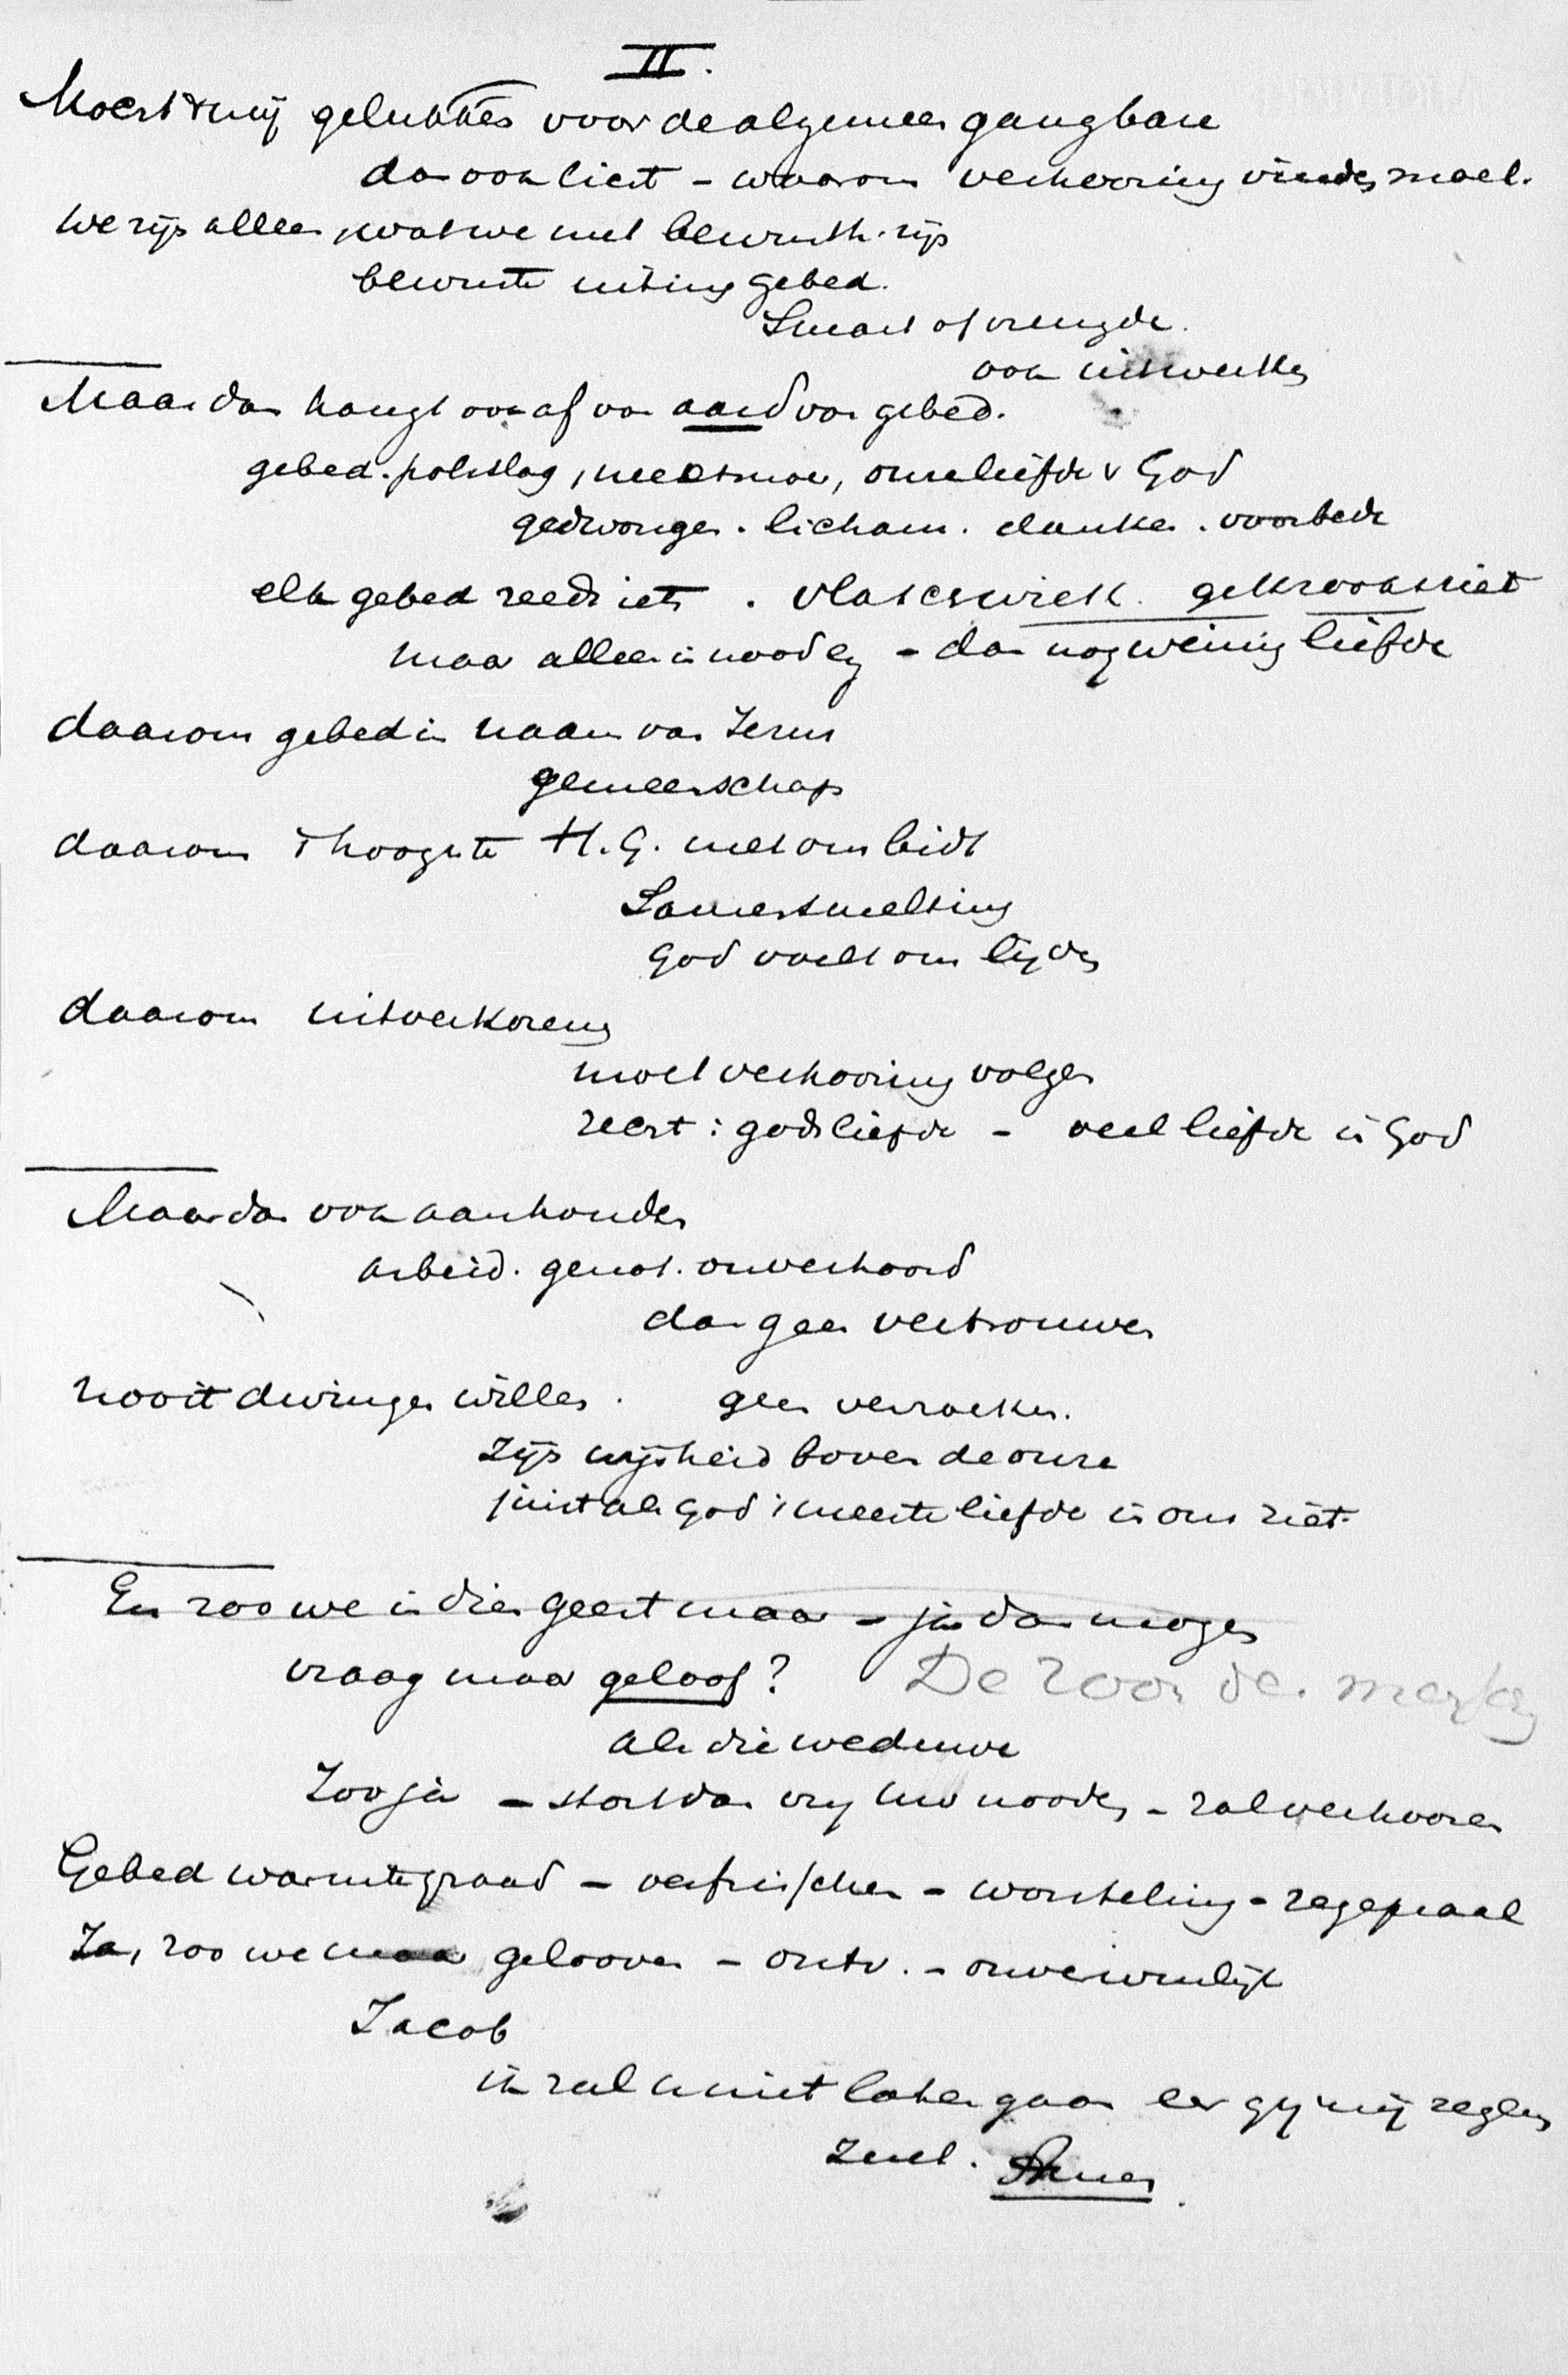 II.
Moest wij gelukkes voor de algemeen gangbare
dan ook licht - waarom verhooring vinden moet.
We zijn alleen, wat we met bewusth. zijn
bewuste uiting gebed.
Smart of vreugde.
ook uitwerken
Maar dan hangt ook af van aard van gebed.
gebed. polsslag, onze liefde v God
gedwongen. licham. danken. voorbede
elk gebed reeds iets. vlaswiek. gekrookt riet
maar alleen in nood en - dan nog weinig liefde
daarom gebed in naam van Jezus
gemeenschap
daarom 't hoogste H.G. met ons bidt
Samensmelting
God voelt ons lijden
daarom uitverkorenen
moet verhooring volgen
eerst: gods liefde - veel liefde in God
Maar dan ook aanhouden
arbeid. genot. onverhoord
dan geen vertrouwen
nooit dwingen willen. geen verzoeken.
Zijn wijsheid boven de onze
juist als God 't meeste liefde in ons ziet.
En zoo we in dien geest maar - ja dan mogen
vraag maar geloof? De Zoon de. merken
als die weduwe
Zoo ja - stort dan vrij uw nooden - zal verhooren
Gebed warmtegraad - verfrisschen - worsteling - zegepraal
Ja, zoo we maar gelooven - ontv. - onverwinlijk
Jacob
ik zal u niet laten gaan eer gij mij zegen
zult. Amen.